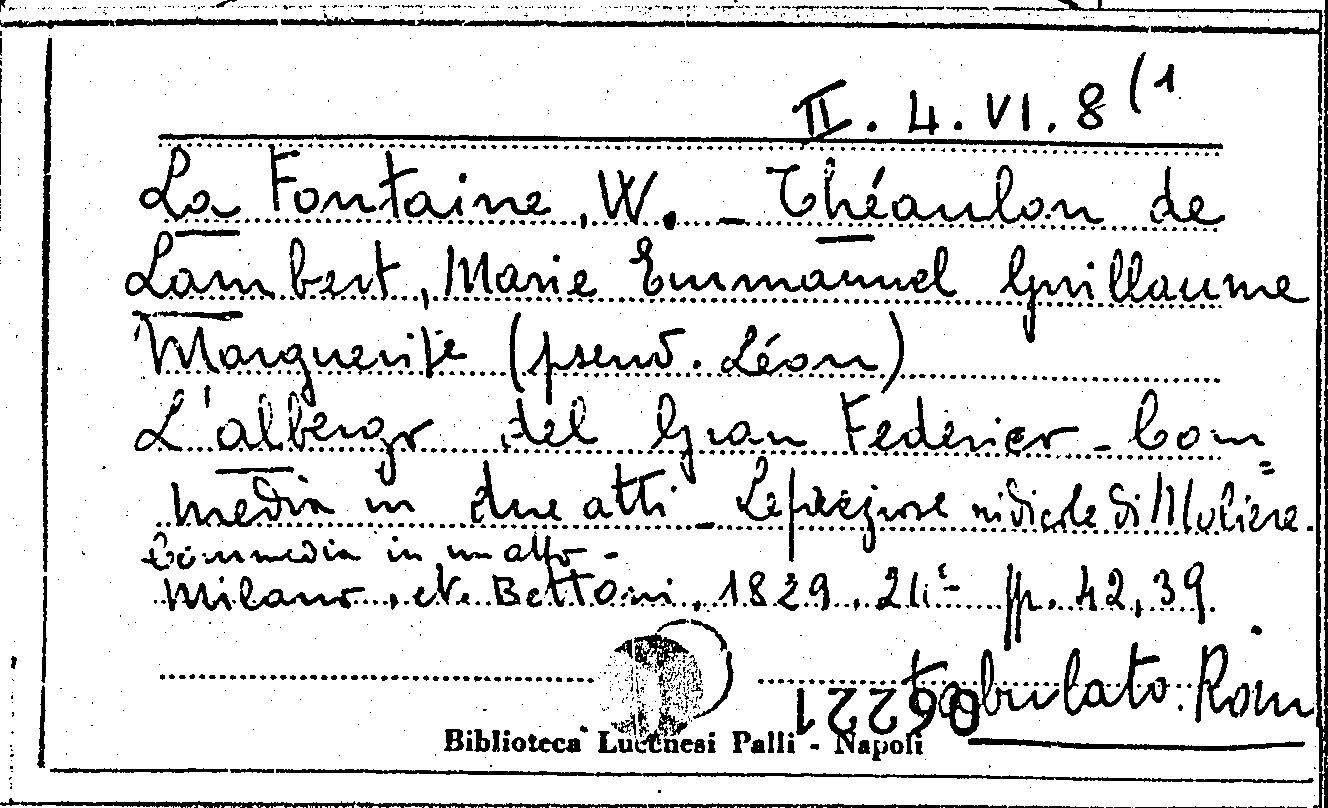 II. 4. VI. 8 (1
La Fontaine, W. - Théaulon de
Lambert, Marie Emmanuel Guillaume
Marguerite (pseud. Léon)
L'albergo del Gran Federico - Com=
media in due atti - Le preziose ridicole di Molière.
Commedia in un atto -
Milano, N. Bettoni, 1829, 24º pp. 42, 39.
tabulato. Rom
062221
Biblioteca Lucchesi Palli - Napoli